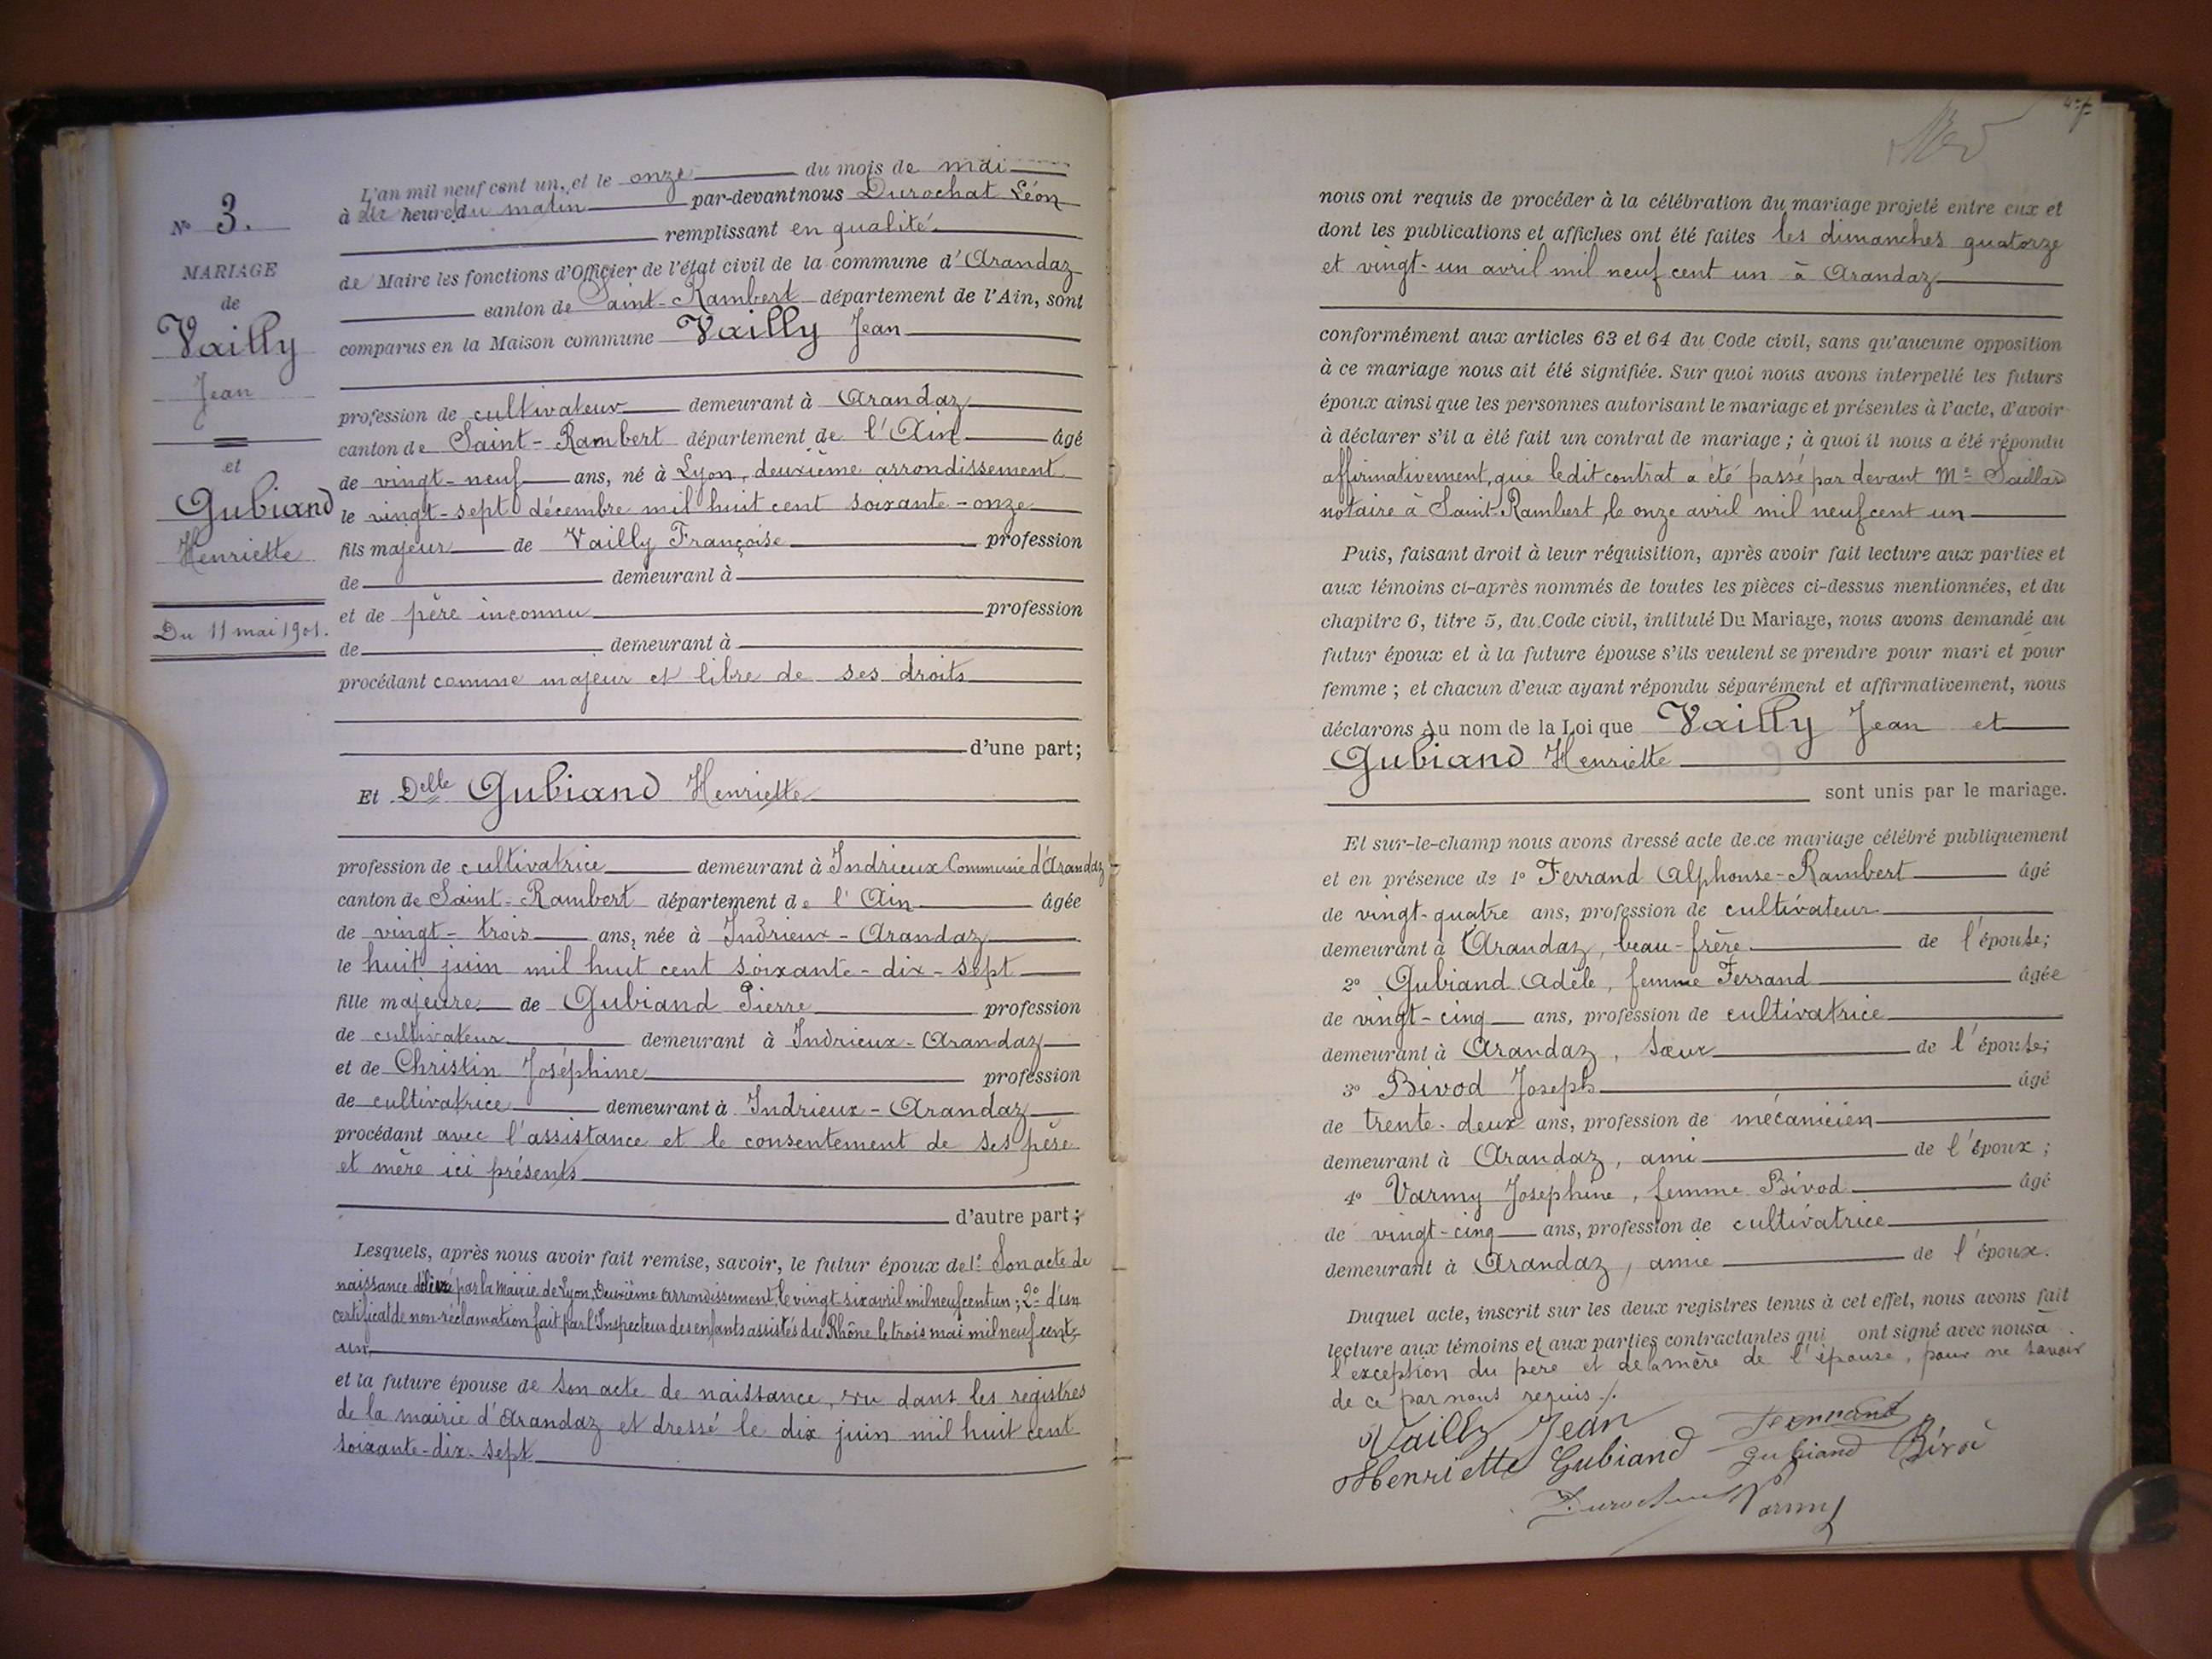 N° 3.
MARIAGE
de
Vailly
Jean
et
Gubiand
Henriette
Du 11 mai 1901.
L'an mil neuf cent un, et le onze du mois de mai
à dix heures du matin par-devant nous Durochat Léon
remplissant en qualité
de Maire les fonctions d'Officier de l'état civil de la commune d'Arandaz
canton de Saint-Rambert département de l'Ain, sont
comparus en la Maison commune Vailly Jean
profession de cultivateur demeurant à Arandaz
canton de Saint-Rambert département de l'Ain âgé
de vingt-neuf ans, né à Lyon, deuxième arrondissement
le vingt-sept décembre mil huit cent soixante-onze
fils majeur de Vailly Françoise profession
de demeurant à
et de père inconnu profession
de demeurant à
procédant comme majeur et libre de ses droits
d'une part;
Et Delle Gubiand Henriette
profession de cultivatrice demeurant à Indrieux Commune d'Arandaz
canton de Saint-Rambert département de l'Ain âgée
de vingt-trois ans, née à Indrieux-Arandaz
le huit juin mil huit cent soixante-dix-sept
fille majeure de Gubiand Pierre profession
de cultivateur demeurant à Indrieux-Arandaz
et de Christin Joséphine profession
de cultivatrice demeurant à Indrieux-Arandaz
procédant avec l'assistance et le consentement de ses père
et mère ici présents
d'autre part;
Lesquels, après nous avoir fait remise, savoir, le futur époux de 1° Son acte de
naissance délivré par la Mairie de Lyon, Deuxième arrondissement, le vingt-six avril mil neuf cent un; 2° d'un
certificat de non-réclamation fait par l'Inspecteur des enfants assistés du Rhône le trois mai mil neuf cent-
un,
et la future épouse de son acte de naissance, vu dans les registres
de la mairie d'Arandaz et dressé le dix juin mil huit cent
soixante-dix-sept
nous ont requis de procéder à la célébration du mariage projeté entre eux et
dont les publications et affiches ont été faites les dimanches quatorze
et vingt-un avril mil neuf cent un à Arandaz
conformément aux articles 63 et 64 du Code civil, sans qu'aucune opposition
à ce mariage nous ait été signifiée. Sur quoi nous avons interpellé les futurs
époux ainsi que les personnes autorisant le mariage et présentes à l'acte, d'avoir
à déclarer s'il a été fait un contrat de mariage; à quoi il nous a été répondu
affirmativement, que ledit contrat a été passé par devant Me Saillard
notaire à Saint-Rambert, le onze avril mil neuf cent un
Puis, faisant droit à leur réquisition, après avoir fait lecture aux parties et
aux témoins ci-après nommés de toutes les pièces ci-dessus mentionnées, et du
chapitre 6, titre 5, du Code civil, intitulé Du Mariage, nous avons demandé au
futur époux et à la future épouse s'ils veulent se prendre pour mari et pour
femme; et chacun d'eux ayant répondu séparément et affirmativement, nous
déclarons Au nom de la Loi que Vailly Jean et
Gubiand Henriette
sont unis par le mariage.
Et sur-le-champ nous avons dressé acte de ce mariage célébré publiquement
et en présence de 1° Ferrand Alphonse-Rambert âgé
de vingt-quatre ans, profession de cultivateur
demeurant à Arandaz, beau-frère de l'épouse;
2° Gubiand Adèle, femme Ferrand âgée
de vingt-cinq ans, profession de cultivatrice
demeurant à Arandaz, sœur de l'épouse;
3° Bivod Joseph âgé
de trente-deux ans, profession de mécanicien
demeurant à Arandaz, ami de l'époux;
4° Varmy Josephine, femme Bivod âgé
de vingt-cinq ans, profession de cultivatrice
demeurant à Arandaz, amie de l'époux.
Duquel acte, inscrit sur les deux registres tenus à cet effet, nous avons fait
lecture aux témoins et aux parties contractantes qui ont signé avec nous à
l'exception du père et de la mère de l'épouse, pour ne savoir
de ce par nous requis ./.
Vailly Jean Ferrand
Henriette Gubiand Gubiand
Durochat Varmy